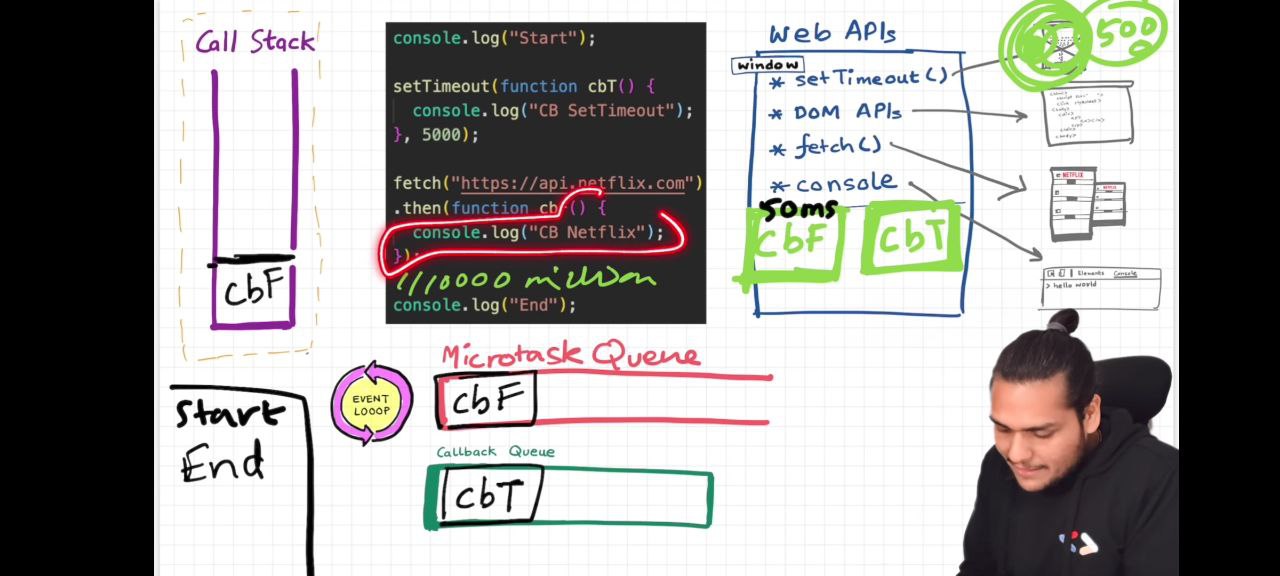 Call Stack
cbF
console.log("Start");
setTimeout(function cbT() {
console.log("CB SetTimeout");
}, 5000);
fetch("https://api.netflix.com")
.then(function cbF() {
console.log("CB Netflix");
});
million
console.log("End");
Web APIs
window
* setTimeout()
* DOM APIs
* fetch()
* console
50ms
cbF
cbT
500
NETFLIX
NETFLIX
Elements Console
> hello world
Start
End
EVENT
LOOOP
Microtask Queue
cbF
Callback Queue
cbT